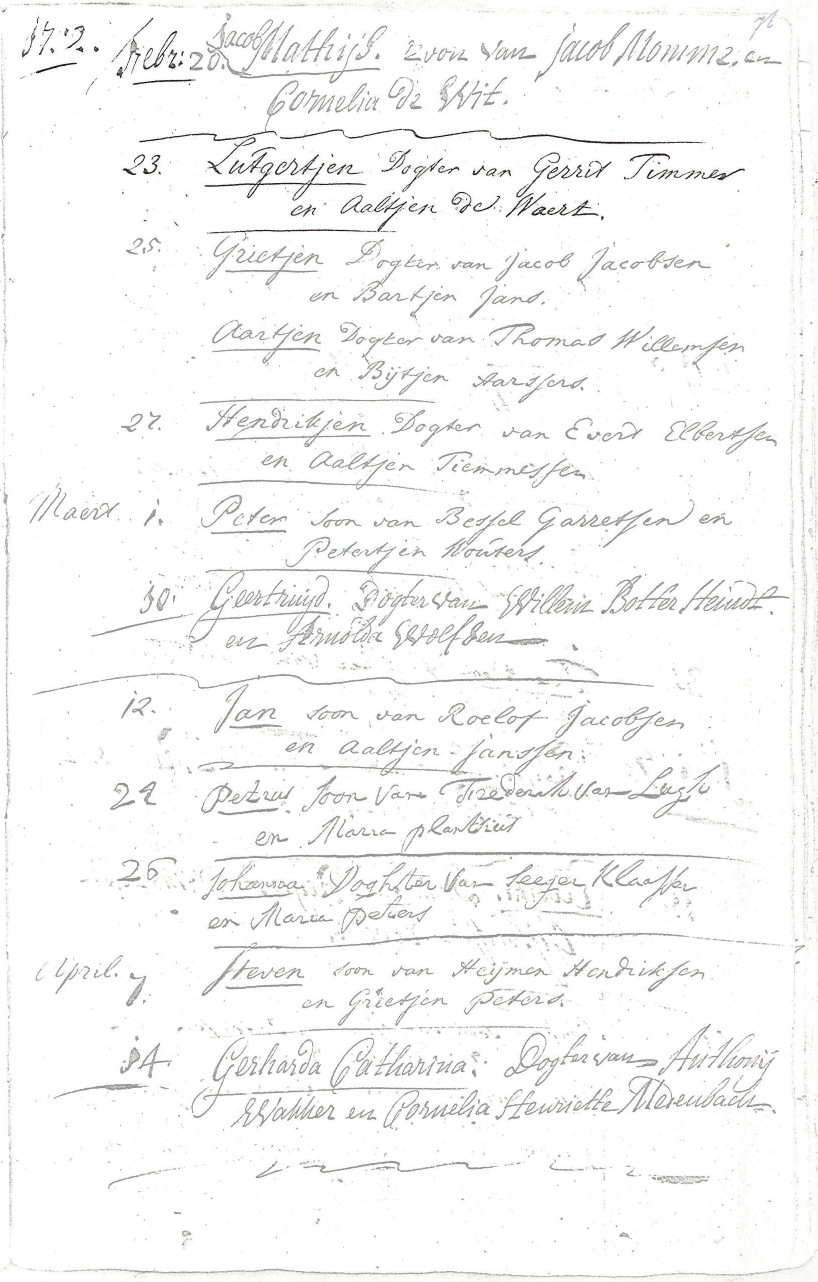 Febr: 20. Jacob Mathijs. zoon van Jacob Momm en
Cornelia de Wit.
23. Lutgertjen Dogter van Gerrit Timmer
en Aaltjen de Waert.
25. Grietjen Dogter van Jacob Jacobsen
en Bartjen Jans.
Aartjen Dogter van Thomas Willemsen
en Bijtjen Aarssers.
27. Hendrikjen Dogter van Evert Elbertsen
en Aaltjen Tiemmessen
Maert 1. Peter soon van Bessel Garretsen en
Petertjen Wouters.
Geertruyd. Dogter van Willem Botter
en Arnolda Wolfsen
12. Jan soon van Roelof Jacobsen
en Aaltjen Janssen.
24 Petrus soon van Frederik van
en Maria plantius
26 Johanna Doghter van Seeger Klaassen
en Maria Peters
April. 7. Steven soon van Heijmen Hendriksen
en Grietjen Peters.
14. Gerharda Catharina: Dogter van Anthonij
Wakker en Cornelia Henriette